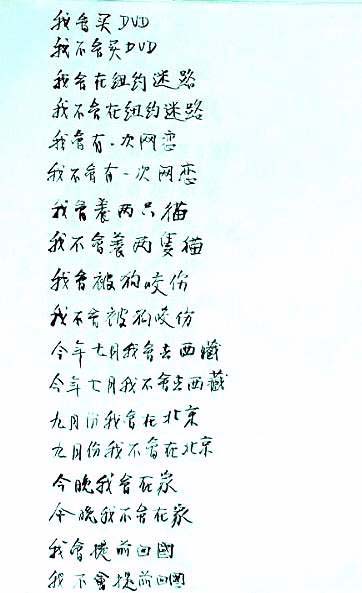 我會买DVD
我不會买DVD
我會在纽约迷路
我不會在纽约迷路
我會有一次网恋
我不會有一次网恋
我會養两只猫
我不會養两隻貓
我會被狗咬伤
我不會被狗咬伤
今年七月我會去西藏
今年七月我不會去西藏
九月份我會在北京
九月份我不會在北京
今晚我會在家
今晚我不會在家
我會提前回國
我不會提前回國